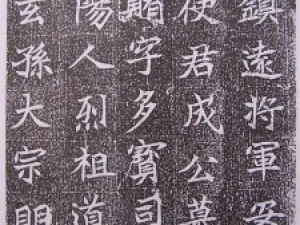 鎮遠将軍安
使君成公墓
字多寶司
陽人烈祖道
玄孫大宗明